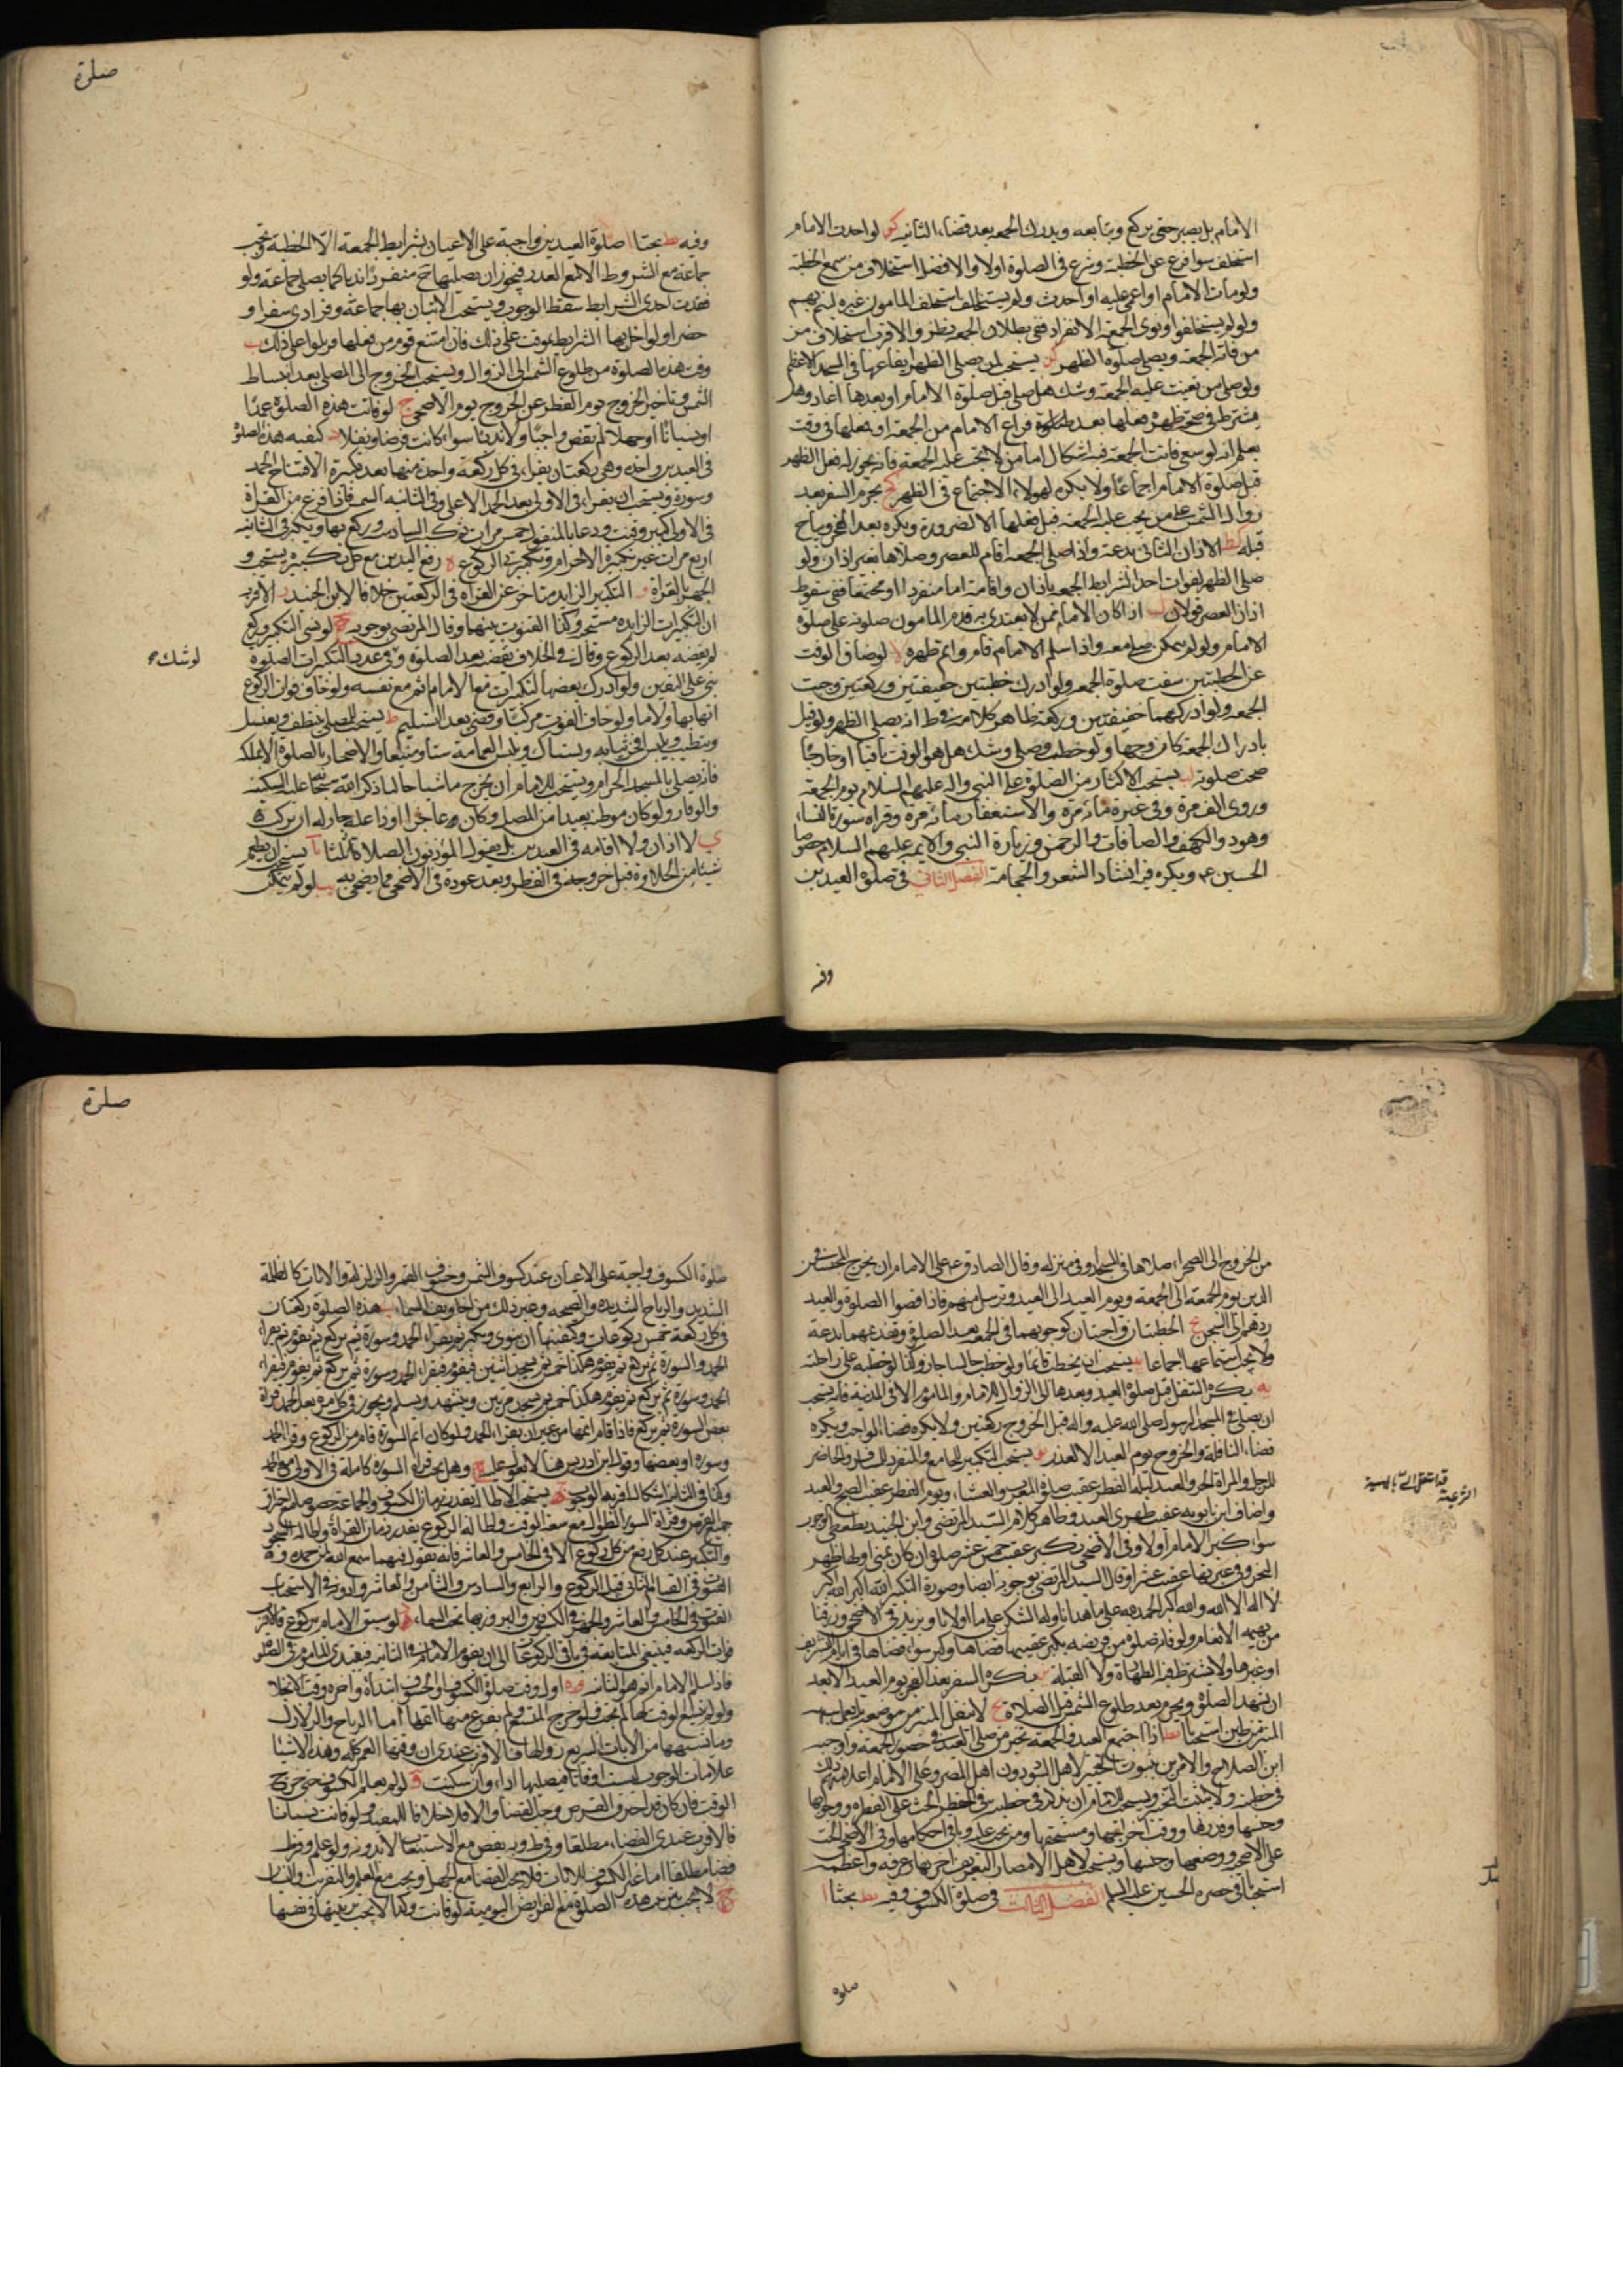 الامام بل يصبر حتى يركع ويتابعه ويدرك الجمعه بعد قضاء الثانيه كو لو احدث الامام
استخلف سوا فرغ عن الخطبه وشرع فى الصلوة اولا والافضل استخلاف من سمع الخطبه
ولو مات الامام او اغمى عليه او احدث ولم يستخلف استخلف المامون غيره ليتم بهم
ولو لم يستخلفوا ونوى الجمعة الانفراد ففى بطلان الجمعه نظر والاقرب استخلاف من
من فاته الجمعه ويصلى صلوة الظهر كز يستحب لمن يصلى الظهر ايقاعها فى المسجد الاعظم
ولو صلى من تعينت عليه الجمعه وشك هل صلى قبل صلوة الامام او بعدها اعاد وهل
يشترط فى صحه ظهره فعلها بعد فراغ الامام من الجمعه او فعلها فى وقت
يعلم انه لو سعى فاتت الجمعه فيه اشكال اما من لا يجب عليه الجمعه فانه يجوز له فعل الظهر
قبل صلوة الامام اجماعا ولا يكره لهولاء الاجتماع فى الظهر كح يحرم السفر بعد
زوال الشمس على من يجب عليه الجمعه قبل فعلها الا لضرورة ويكره بعد الفجر ويباح
قبله كط الاذان الثانى بدعة واذا صلى الجمعه اقام للعصر وصلاها بغير اذان ولو
صلى الظهر لفوات احد شرايط الجمعه باذان واقامة اما منفردا او مجتمعا ففى سقوط
اذان العصر قولان ل اذا كان الامام ممن لا يقتدى به قدم المامون صلوته على صلوة
الامام ولو لم يتمكن صلى معه واذا سلم الامام قام واتم ظهره لا لو ضاق الوقت
عن الخطبتين سقت صلوة الجمعه ولو ادرك خطبتين خفيفتين وركعتين وجبت
الجمعه ولو ادركهما خفيفتين وركعه ظاهر كلامه فى ط انه يصلى الظهر ولو قيل
بادراك الجمعه كان وجها ولو خطب وصلى وشك هل هو الوقت باقيا او خارجا
صحت صلوته لب يستحب الاكثار من الصلوة على النبى واله عليهم السلام يوم الجمعة
وروى الف مرة وفى غيره مائه مرة والاستغفار مائه مرة وقراة سورة النساء
وهود والكهف والصافات والرحمن وزيارة النبى والائمه عليهم السلام خصوصا
الحسين ع ويكره فيه انشاد الشعر والحجامة الفصل الثانى فى صلوة العيدين
وفيه
صلوة
وفيه يط بحثا ا صلوة العيدين واجبة على الاعيان بشرايط الجمعة الا الخطبة وتجب
جماعة مع الشروط الا مع العذر فيجوز ان يصليها ح منفردا ندبا كما يصلى جماعة ولو
فقدت احدى الشرايط سقط الوجوب ويستحب الاتيان بها جماعة وفرادى سفرا و
حضرا ولو اخل بها الشرايط عوقت على ذلك فان امتنع قوم من فعلها قوتلوا على ذلك ب
وقت هذه الصلوة من طلوع الشمس الى الزوال ويستحب الخروج الى المصلى بعد انبساط
الشمس وتاخير الخروج يوم الفطر عن الخروج يوم الاضحى ج لو فاتت هذه الصلوة عمدا
او نسيانا او جهلا لم تقض واجبا ولا ندبا سواء كانت فرضا او نفلا د كيفيه هذه الصلوة
فى العيدين واحده وهى ركعتان يقراء فى كل ركعة واحدة منهما بعد تكبيرة الافتتاح الحمد
وسورة ويستحب ان يقراء فى الاولى بعد الحمد الاعلى وفى الثانيه الشمس فاذا فرغ من القراة
فى الاولى كبر وقنت ودعا بالمنقول خمس مرات ثم كبر السادسه وركع بها ويكبر فى الثانيه
اربع مرات غير تكبيرة الاحرام وتكبيرة الركوع ه رفع اليدين مع كل تكبيره يستحب و
الجهر بالقراة و التكبير الزايد متاخر عن القراة فى الركعتين خلافا لابن الجنيد ز الاقرب
ان التكبيرات الزايده مستحبه وكذا القنوت بينها وقال المرتضى بوجوبه ح لو نسى التكبير وركع
لم يقضه بعد الركوع وقال فى الخلاف يقضيه بعد الصلوة وفى عدد التكبيرات الصلوة
لو شك ح
بنى على اليقين ولو ادرك بعضها لتكبيرات مع الامام اتم مع نفسه ولو خاف فوات الركوع
اتى بها ولاء ولو خاف الفوت تركها وقضى بعد التسليم ط يستحب للمصلى يتنظف ويغتسل
ويتطيب ويلبس افخر ثيابه ويستاك ويلبس العمامة شتاء وصيفا والاصحار بالصلوة الا بمكه
فانه يصلى بالمسجد الحرام ويستحب للامام ان يخرج ماشيا حافيا ذاكرا لله سبحانه عليه السكينه
والوقار ولو كان موطنه بعيدا من المصلى وكان عاجزا او ذا علة جاز له ان يركب
ى لا اذان ولا اقامه فى العيدين بل يقول المؤذنون الصلاة ثلثا يا يستحب ان يطعم
شيئا من الحلاوة قبل خروجه فى الفطر وبعد عوده فى الاضحى مما يضحى به يب لو لم يتمكن
من الخروج الى الصحراء صلاها فى المسجد او فى منزله وقال الصادق ع على الامام ان يخرج المحبسين فى
الدين يوم الجمعة الى الجمعة ويوم العيد الى العيد ويرسل معهم فاذا قضوا الصلوة والعيد
ردهم الى السجن يج الخطبتان واجبتان كوجوبهما فى الجمعه بعد الصلوة وتقديمهما بدعة
ولا يجب استماعهما اجماعا يد يستحب ان يخطب قائما ولو خطب جالسا جاز وكذا لو خطبه على راحلته
يه يكره التنفل قبل صلوة العيد وبعدها الى الزوال للامام والماموم الا فى المدينة فانه يستحب
ان يصلى فى المسجد الرسول صلى الله عليه واله قبل الخروج ركعتين ولا يكره قضاء الواجب ويكره
قضاء النافلة والخروج يوم العيد الا لعذر يو يستحب التكبير للجامع والمنفرد والحاضر
للرجل والمراة الحر والعبد ليلة الفطر عقيب صلوة المغرب والعشاء ويوم الفطر عقيب الصبح والعيد
واضاف ابن بابويه عقيب ظهرى العيد وظاهر كلام السيد المرتضى وابن الجنيد يعطى الوجوب
سوا كبر الامام او لا وفى الاضحى تكبر عقيب خمس عشر صلوة ان كان بمنى اولها ظهر
النحر وفى غيرها عقيب عشر وقال السيد المرتضى بوجوبه ايضا وصورة التكبير الله اكبر الله اكبر
لا اله الا الله والله اكبر الحمد لله على ما هدانا وله الشكر على ما اولانا ويزيد فى الاضحى ورزقنا
من بهيمه الانعام ولو فاته صلوة من فريضه يكبر عقيبها قضاها وكبر سواء قضاها فى ايام التشريق
او غيرها ولا يشترط فيه الطهارة ولا القبلة يز يكره السفر بعد الفجر يوم العيد الا بعد
ان يشهد الصلوة ويحرم بعد طلوع الشمس قبل الصلاة يح لا ينقل المنبر من موضعه بل يعمل شبه
المنبر من طين استحبابا يط اذا اجتمع العيد والجمعه تخير من صلى العيد فى حضور الجمعه واوجب
ابن الصلاح والاقرب ثبوت التخير لاهل السواد دون اهل المصر وعلى الامام اعلامهم ذلك
فى خطبته
على الاضحيه ووصفها وجنسها ويستحب لاهل الامصار التعريف اخر نهار عرفه واعظمه
استحبابا فى حضرة الحسين عليه السلم الفصل الثالث فى صلوة الكسوف وفيه يط بحثا ا
صلوة
صلوة
صلوة الكسوف واجبة على الاعيان عند كسوف الشمس وخسوف القمر والزلزلة والايات كالظلمة
الشديده والرياح الشديده والصيحه وغير ذلك من اخاويف السماء ب هذه الصلوة ركعتان
فى كل ركعة خمس ركوعات وكيفيتها ان ينوى ويكبر ثم يقراء الحمد وسورة ثم يركع ثم يقوم فيقراء
الحمد والسورة ثم يركع ثم يقوم هكذا خمسا ثم يسجد اثنتين فيقوم فيقراء الحمد وسورة ثم يركع ثم يقوم فيقراء
الحمد وسورة ثم يركع ثم يقوم هكذا خمسا ثم يسجد مرتين ويتشهد ويسلم ويجوز فى كل مرة بعد الحمد قراة
بعض السورة ثم يركع فاذا قام اتمها من غير ان يقراء الحمد ولو كان اتم السورة قام من الركوع وقراء الحمد
وسورة او بعضها وقول ابن ادريس هنا لا تعويل عليه ج وهل يجب قراة السورة كاملة فى الاولى مع الحمد
وكذا فى الثانيه اشكال اقربه الوجوب د يستحب الاطالة بقدر زمان الكسوف والجماعة
جميع القرص وقراءة السور الطوال مع سعة الوقت واطالة الركوع بقدر زمان القراة واطالة السجود
والتكبير عند كل رفع من كل ركوع الا فى الخامس والعاشر فانه يقول فيهما سمع الله لمن حمده و
القنوت فى القيام الثانى قبل الركوع والرابع والسادس والثامن والعاشر وادونه فى الاستحباب
القنوت فى الخامس والعاشر والجهر فى الكسوفين والبروز بها تحت السماء ه لو سبق الامام بركوع فالاقرب
فوات الركعه فينبغى المتابعة فى باقى الركوعات الى ان يقوم الامام فى الثانيه فيقتدى الماموم
فاذا سلم الامام اتم هو الثانيه و اول وقت صلوة الكسوف والخسوف ابتداؤه واخره وقت الانجلاء
ولو لم يتسع الوقت لها لم تجب ولو خرج المتسع ولم يفرغ منها اتمها اما الرياح والزلازل
وما شبهها من الايات السريع زوالها فالاقرب عندى ان وقتها العمر كله وهذه الاشياء
علامات الوجوب ليست اوقاتا فيصليها اداء وان سكنت ز لو لم يعلم الكسوف حتى خرج
الوقت فان كان قد احترق القرص وجب القضاء والا فلا خلافا للمفيد ولو فاتت نسيانا
فالاقرب عندى القضاء مطلقا وفى ط ويه يقض مع الاستيعاب لا بدونه ولو علم وفرط
قضا مطلقا اما غير الكسوف من الايات فلا يجب القضا مع الجهل ويجب مع العلم والتفريط والنسيان
ح لا يجب ترتيب هذه الصلوة مع الفرايض اليوميه لو فاتت وكذا لا يجب ترتيبها فى نفسها